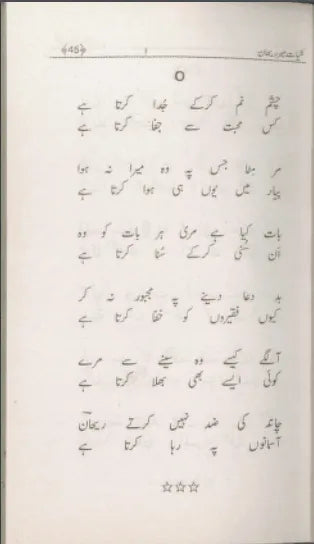 ﴿45﴾
O
چشم نم کرکے جُدا کرتا ہے
کس محبت سے جفا کرتا ہے
مر مِٹا جس پہ وہ میرا نہ ہوا
پیار میں یوں ہی ہوا کرتا ہے
بات کیا ہے مری ہر بات کو وہ
اَن سُنی کرکے سُنا کرتا ہے
بد دعا دینے پہ مجبور نہ کر
کیوں فقیروں کو خفا کرتا ہے
آ لگے کیسے وہ سینے سے مرے
کوئی ایسے بھی بھلا کرتا ہے
چاند کی ضد نہیں کرتے ریحانؔ
آسمانوں پہ رہا کرتا ہے
☆☆☆